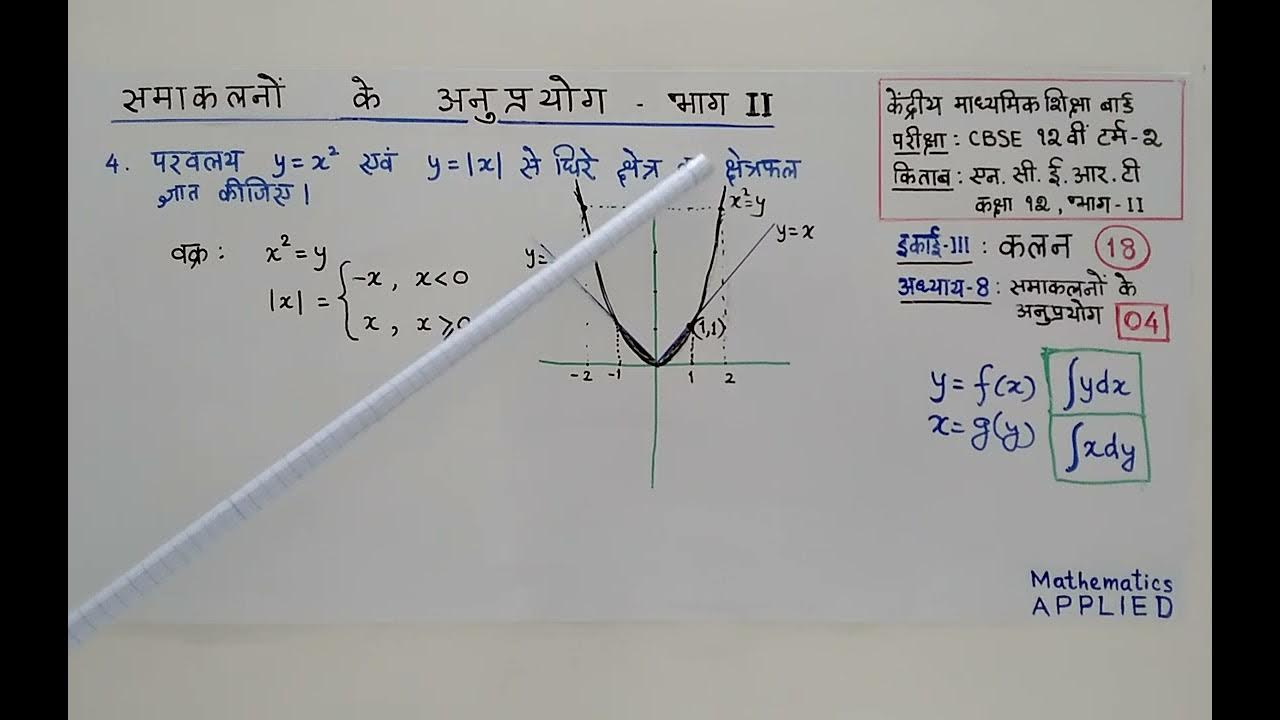 समाकलनों के अनुप्रयोग - भाग II
4. परवलय y=x² एवं y=|x| से घिरे क्षेत्र क्षेत्रफल
ज्ञात कीजिए।
वक्र: x²=y
|x| = { -x, x<0
x, x≥0
x²=y
y=x
y=
(1,1)
-2 -1 1 2
केंद्रीय माध्यमिक शिक्षा बोर्ड
परीक्षा: CBSE 12वीं टर्म-2
किताब: एन.सी.ई.आर.टी
कक्षा 12, भाग-II
इकाई-III: कलन 18
अध्याय-8: समाकलनों के
अनुप्रयोग 04
y=f(x) ∫ydx
x=g(y) ∫xdy
Mathematics
APPLIED